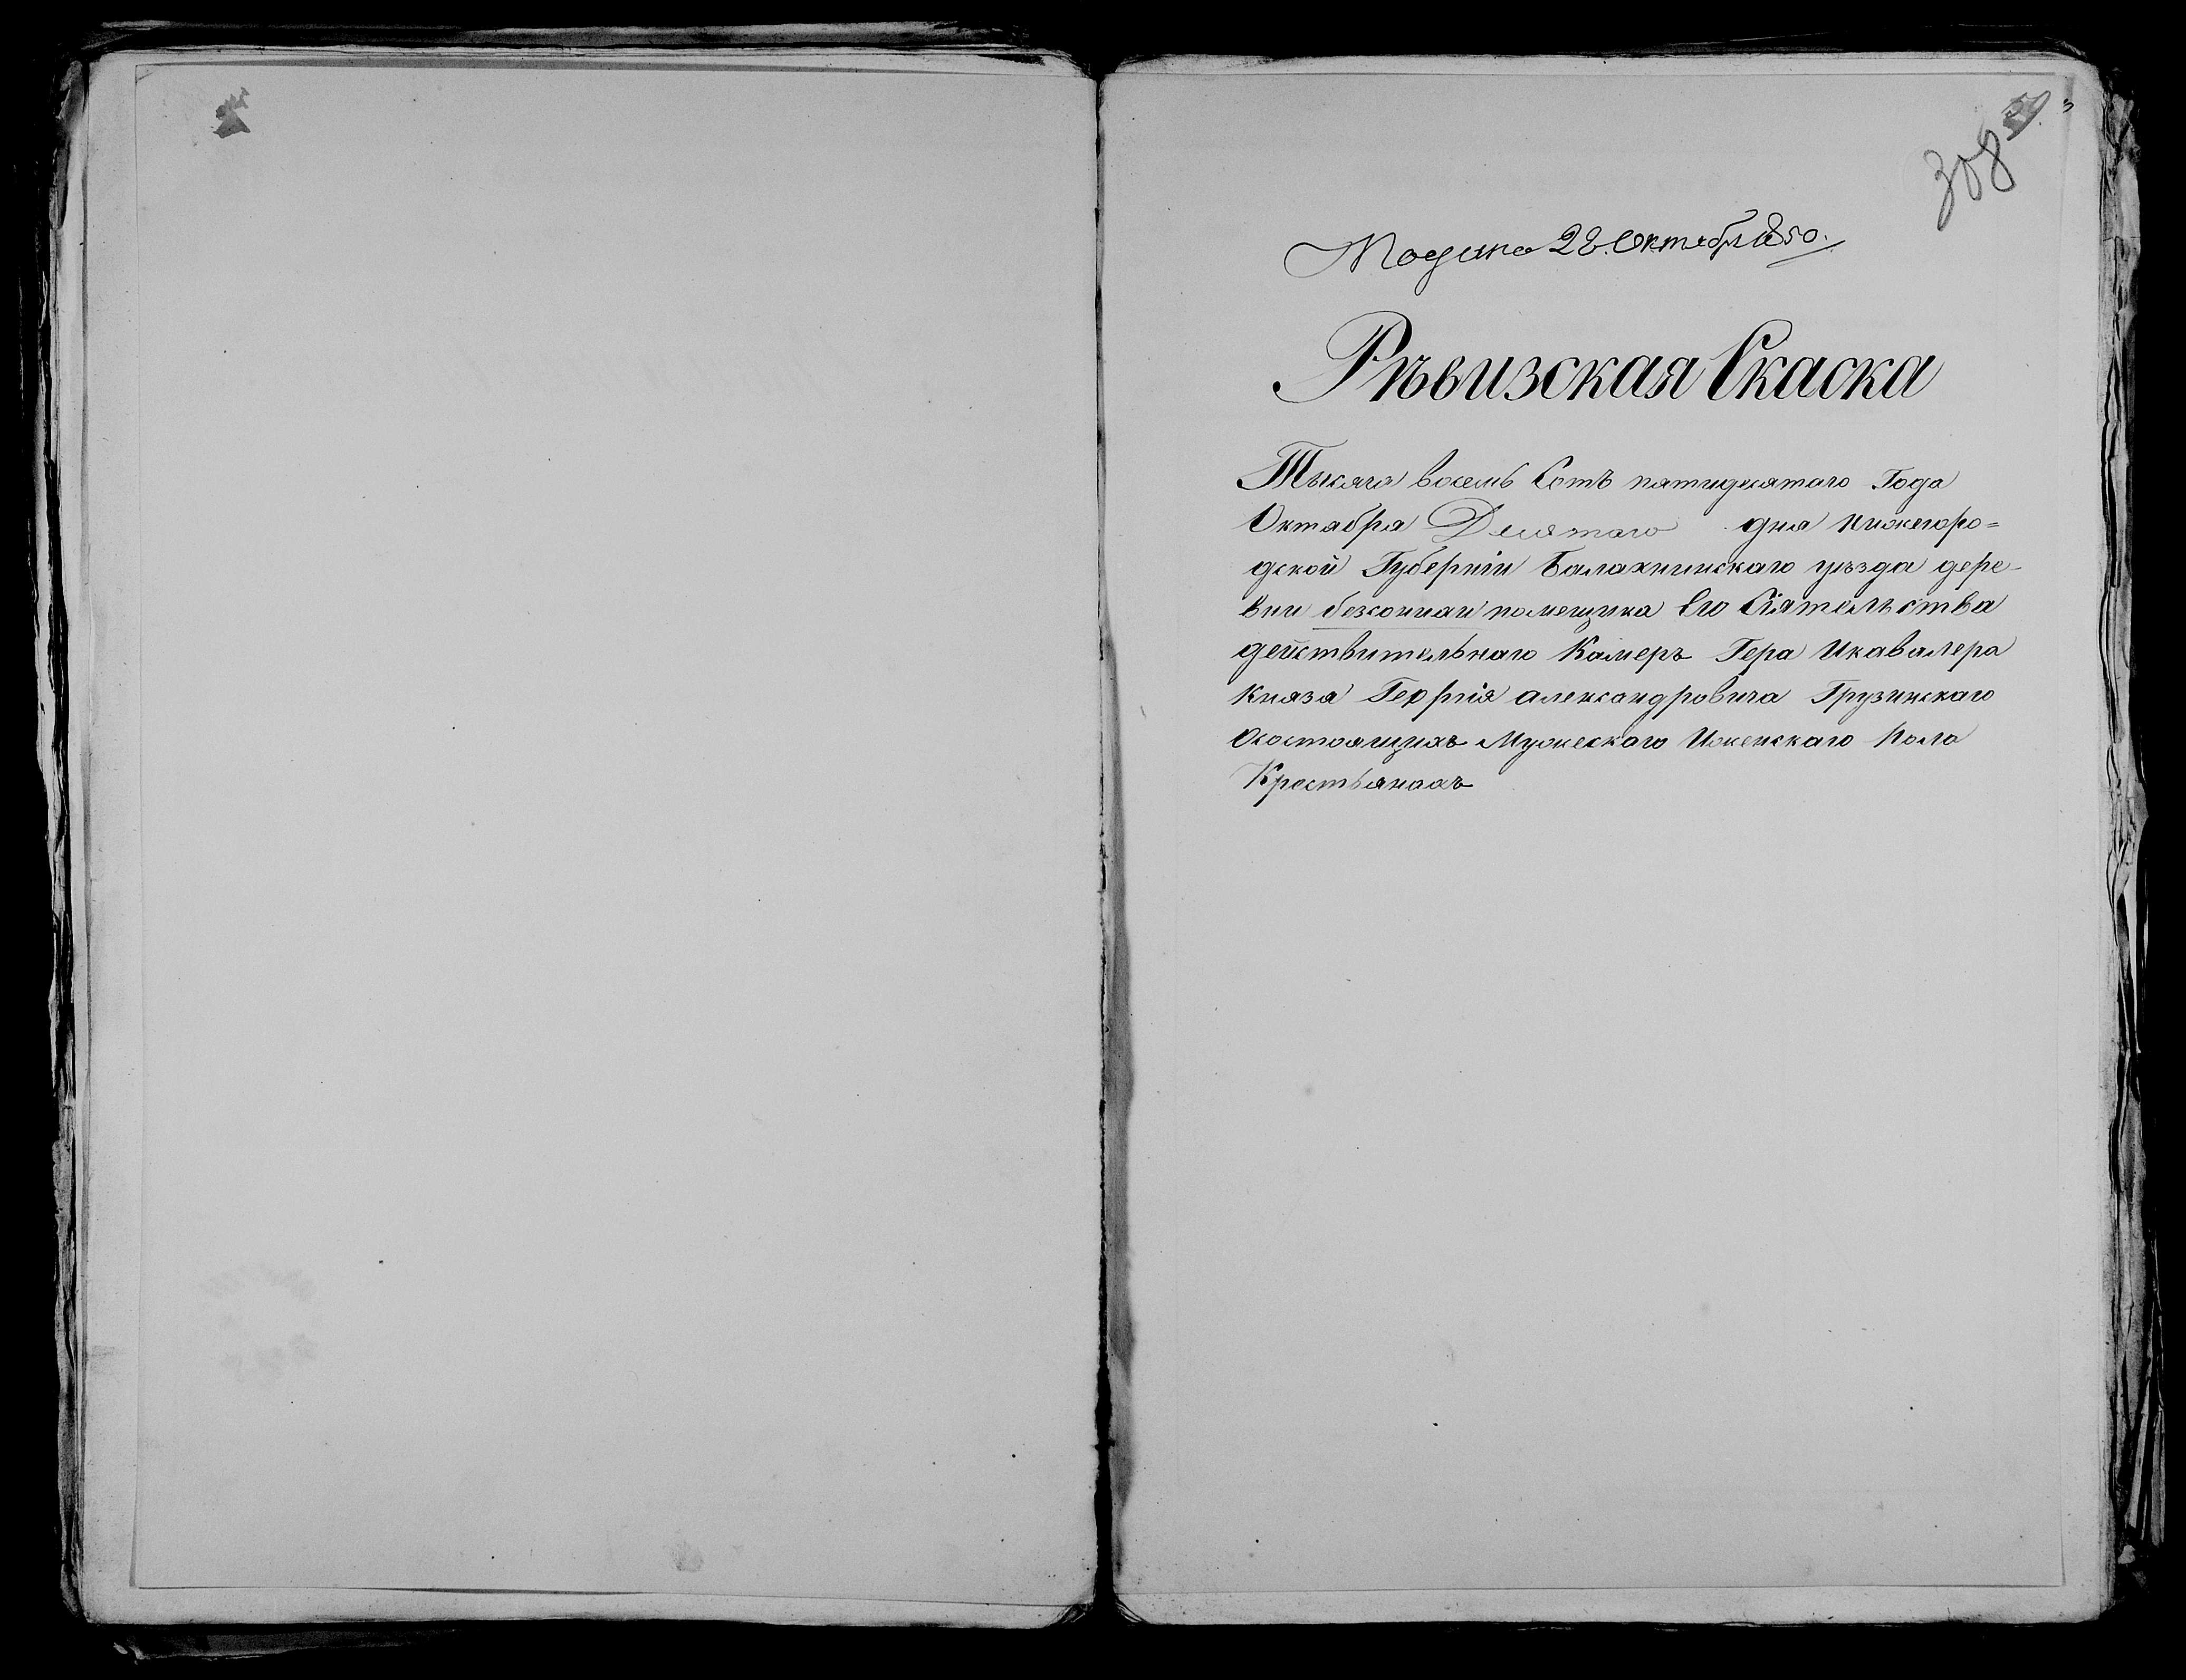 308
Подана 28. Октября 1850.
Ръвизская Скаска
Тысяча восемь Сотъ пятидесятаго Года
Октября Десятаго дня нижегоро=
дской Губерніи Балахнинскаго уъзда дере-
вни безсоннаи помещика Его Сіятельства
действительнаго Камеръ Гера Икавалера
Князя Георгія александровича Грузинскаго
Осостоящихъ Мужескаго Иженскаго Пола
Крестьянахъ